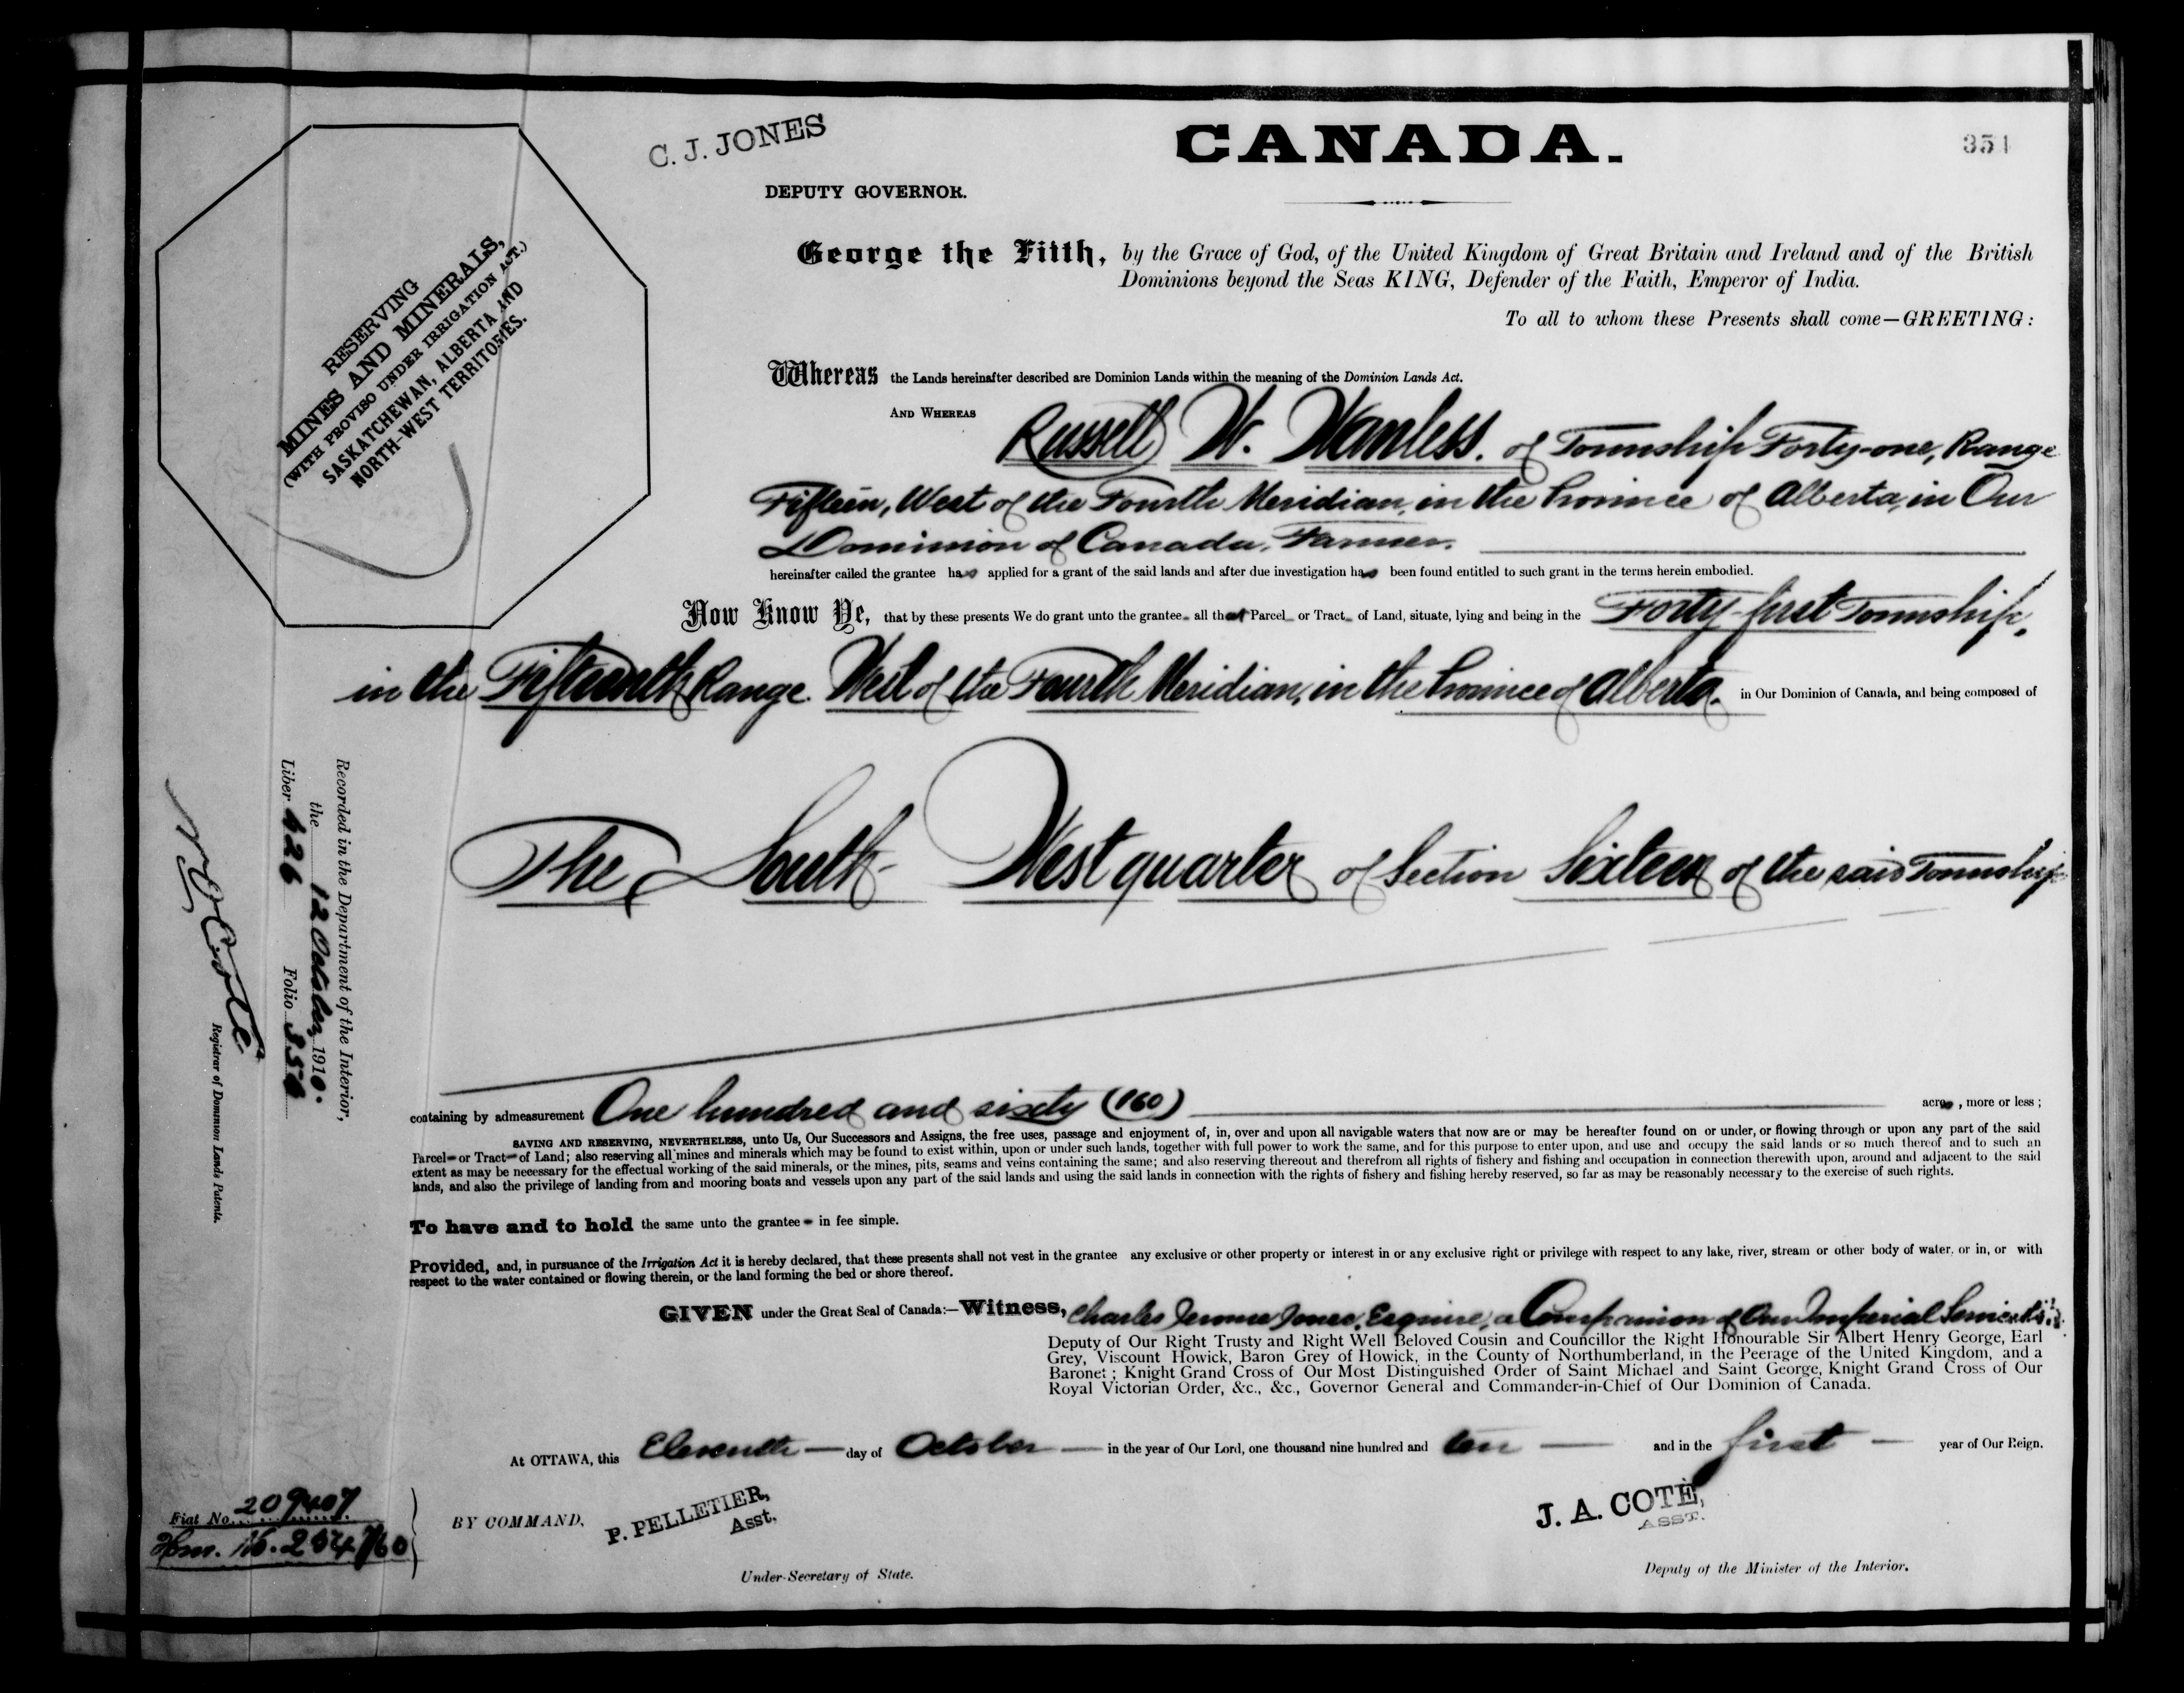 C. J. JONES
CANADA.
351
DEPUTY GOVERNOR.
RESERVING
MINES AND MINERALS,
(WITH PROVISO UNDER IRRIGATION ACT.)
SASKATCHEWAN, ALBERTA AND
NORTH-WEST TERRITORIES.
George the Fifth, by the Grace of God, of the United Kingdom of Great Britain and Ireland and of the British
Dominions beyond the Seas KING, Defender of the Faith, Emperor of India.
To all to whom these Presents shall come—GREETING:
Whereas the Lands hereinafter described are Dominion Lands within the meaning of the Dominion Lands Act.
AND WHEREAS Russell W. Wanless. of Township Forty-one, Range
Fifteen, West of the Fourth Meridian, in the Province of Alberta, in Our
Dominion of Canada, Farmer.
hereinafter called the grantee has applied for a grant of the said lands and after due investigation has been found entitled to such grant in the terms herein embodied.
Now Know Ye, that by these presents We do grant unto the grantee all that Parcel or Tract of Land, situate, lying and being in the Forty-first Township,
in the Fifteenth Range. West of the Fourth Meridian, in the Province of Alberta. in Our Dominion of Canada, and being composed of
The South-West quarter of Section Sixteen of the said Township
containing by admeasurement One hundred and sixty (160) acres, more or less;
SAVING AND RESERVING, NEVERTHELESS, unto Us, Our Successors and Assigns, the free uses, passage and enjoyment of, in, over and upon all navigable waters that now are or may be hereafter found on or under, or flowing through or upon any part of the said
Parcel or Tract of Land; also reserving all mines and minerals which may be found to exist within, upon or under such lands, together with full power to work the same, and for this purpose to enter upon, and use and occupy the said lands or so much thereof and to such an
extent as may be necessary for the effectual working of the said minerals, or the mines, pits, seams and veins containing the same; and also reserving thereout and therefrom all rights of fishery and fishing and occupation in connection therewith upon, around and adjacent to the said
lands, and also the privilege of landing from and mooring boats and vessels upon any part of the said lands and using the said lands in connection with the rights of fishery and fishing hereby reserved, so far as may be reasonably necessary to the exercise of such rights.
To have and to hold the same unto the grantee in fee simple.
Provided, and, in pursuance of the Irrigation Act it is hereby declared, that these presents shall not vest in the grantee any exclusive or other property or interest in or any exclusive right or privilege with respect to any lake, river, stream or other body of water, or in, or with
respect to the water contained or flowing therein, or the land forming the bed or shore thereof.
GIVEN under the Great Seal of Canada:—Witness, Charles Jerome Jones, Esquire, a Companion of Our Imperial Service
Deputy of Our Right Trusty and Right Well Beloved Cousin and Councillor the Right Honourable Sir Albert Henry George, Earl
Grey, Viscount Howick, Baron Grey of Howick, in the County of Northumberland, in the Peerage of the United Kingdom, and a
Baronet; Knight Grand Cross of Our Most Distinguished Order of Saint Michael and Saint George, Knight Grand Cross of Our
Royal Victorian Order, &c., &c., Governor General and Commander-in-Chief of Our Dominion of Canada.
At OTTAWA, this Eleventh day of October in the year of Our Lord, one thousand nine hundred and ten and in the first year of Our Reign.
BY COMMAND,
P. PELLETIER,
Asst.
Under-Secretary of State.
J. A. COTÉ,
ASST.
Deputy of the Minister of the Interior.
Recorded in the Department of the Interior,
the 12 October 1910.
Liber 626 Folio 350
N O Coté
Registrar of Dominion Lands Patents.
Fiat No. 209407
Hom.